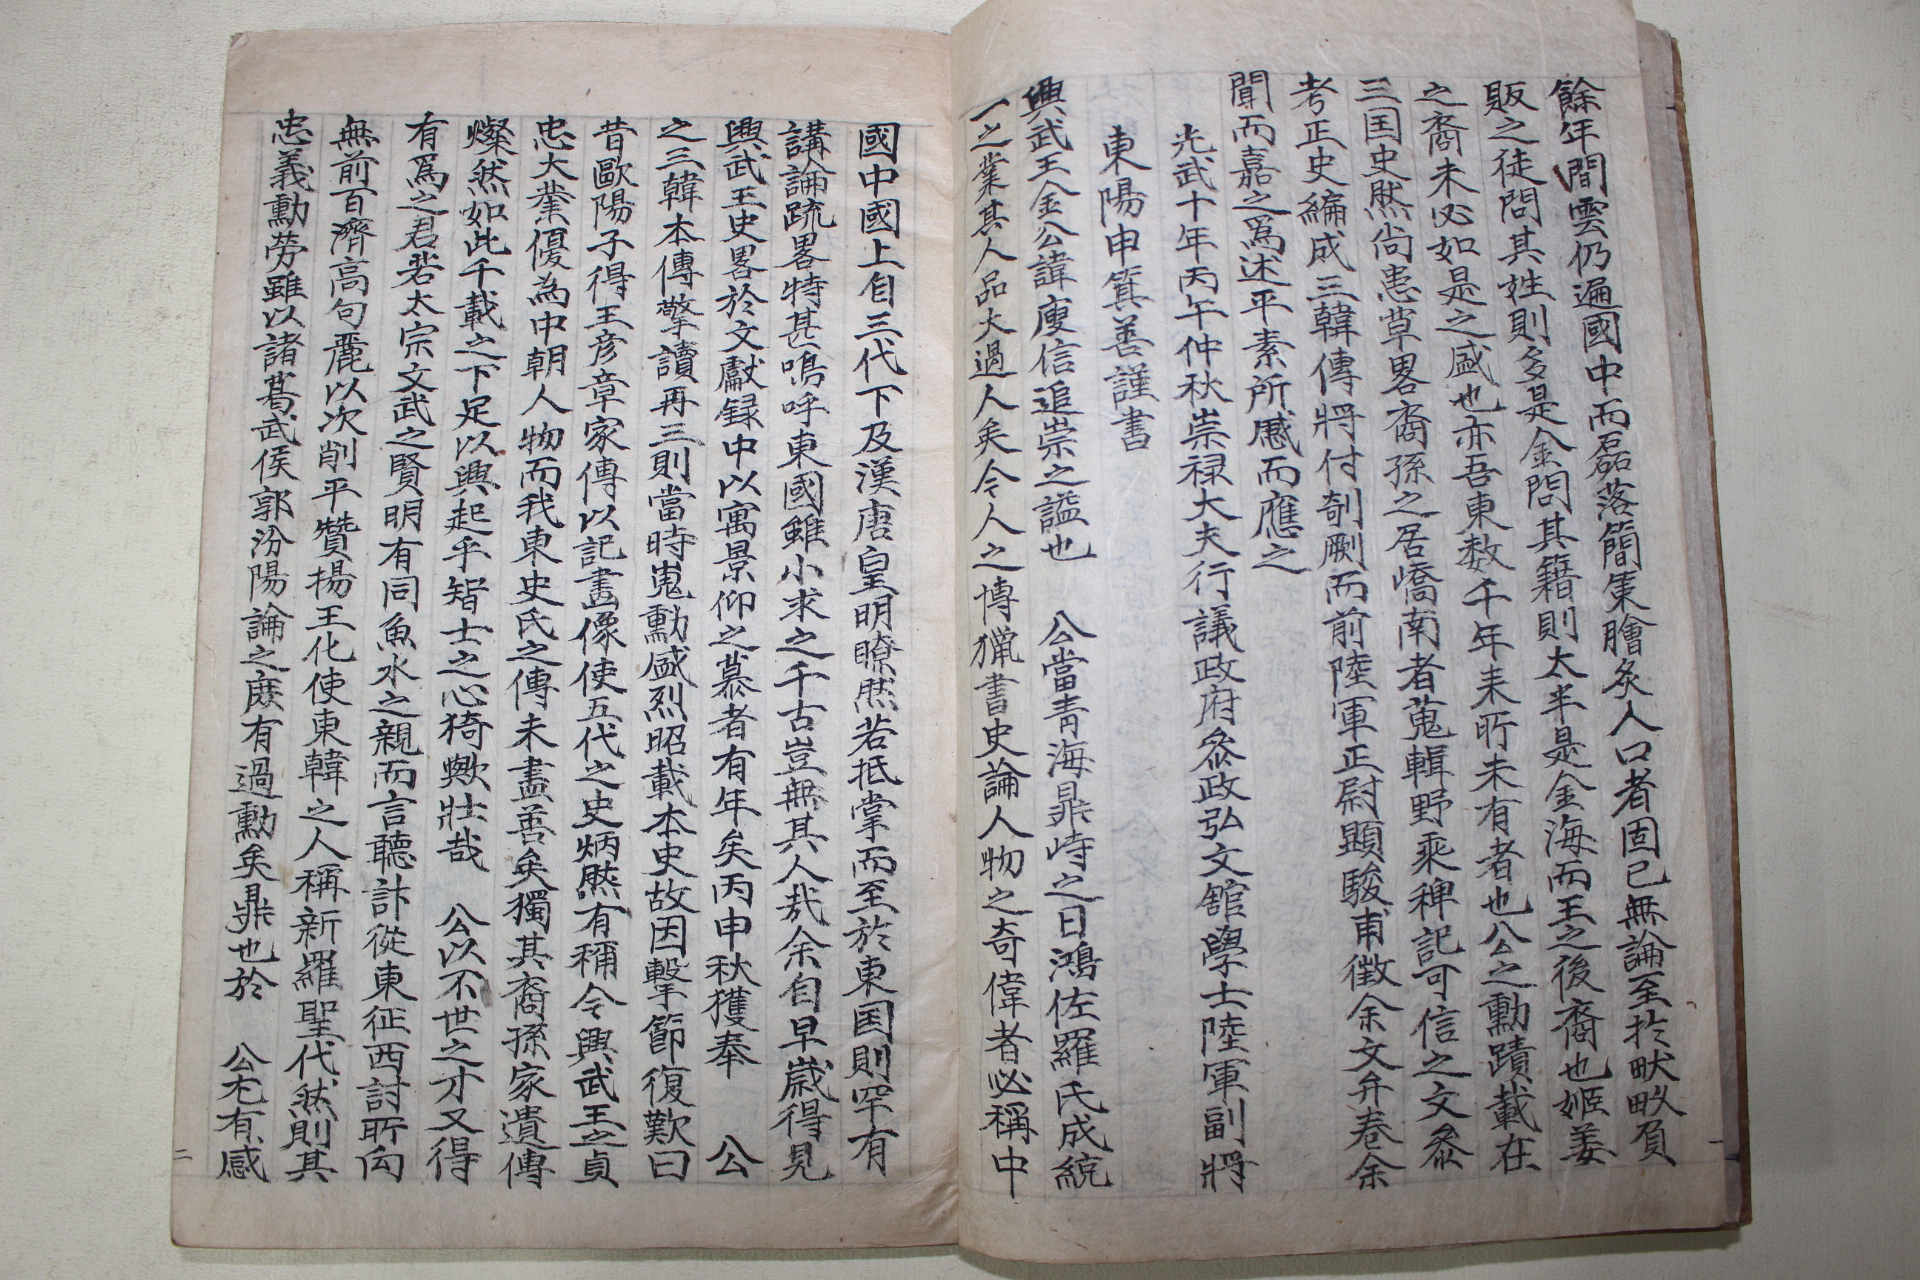 餘年間雲仍遍國中而磊落簡策膾炙人口者固已無論至於畎畝負
販之徒問其姓則多是金問其籍則太半是金海而王之後裔也姬姜
之裔未必如是之盛也亦吾東数千年来所未有者也公之勳蹟載在
三国史然尚患草畧裔孫之居嶠南者蒐輯野乘稗記可信之文叅
考正史編成三韓傳將付剞劂而前陸軍正尉顯駿甫徵余文弁卷余
聞而嘉之爲述平素所感而應之
光武十年丙午仲秋崇禄大夫行議政府叅政弘文舘學士陸軍副將
東陽申箕善謹書
興武王金公諱庾信追崇之謚也 公當青海鼎峙之日鴻佐羅氏成統
一之業其人品大過人矣今人之博獵書史論人物之奇偉者必稱中
國中國上自三代下及漢唐皇明瞭然若抵掌而至於東国則罕有
講論疏畧特甚嗚呼東國雖小求之千古豈無其人哉余自早歲得見
興武王史畧於文獻録中以寓景仰之慕者有年矣丙申秋獲奉 公
之三韓本傳擎讀再三則當時嵬勳盛烈昭載本史故因擊節復歎曰
昔歐陽子得王彦章家傳以記畫像使五代之史炳然有稱今興武王之貞
忠大業優為中朝人物而我東史氏之傳未盡善矣獨其裔孫家遺傳
燦然如此千載之下足以興起乎智士之心猗歟壯哉 公以不世之才又得
有爲之君若太宗文武之賢明有同魚水之親而言聽計從東征西討所向
無前百濟高句麗以次削平贊揚王化使東韓之人稱新羅聖代然則其
忠義勳勞雖以諸葛武侯郭汾陽論之庶有過勳矣鼎也於 公尤有感
一
二